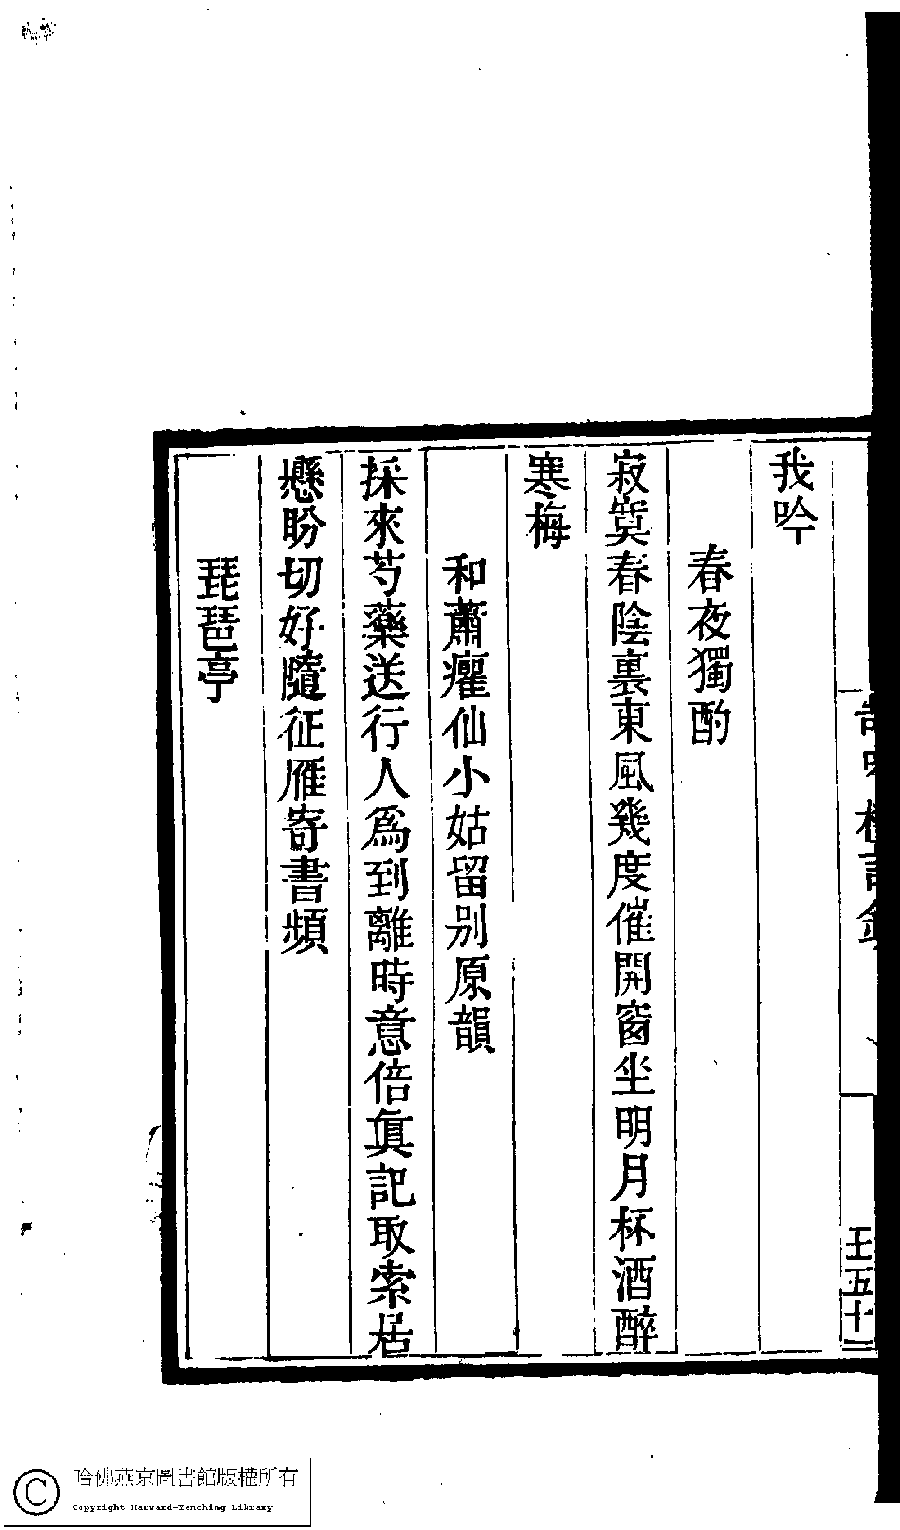 我吟
春夜獨酌
寂寞春陰裏東風幾度催開窗坐明月杯酒醉
寒梅
和蕭癯仙小姑留别原韻
採來芍藥送行人爲到離時意倍眞記取索居
懸盼切好隨征雁寄書頻
琵琶亭
五十
哈佛燕京圖書館版權所有
Copyright Harvard-Yenching Library